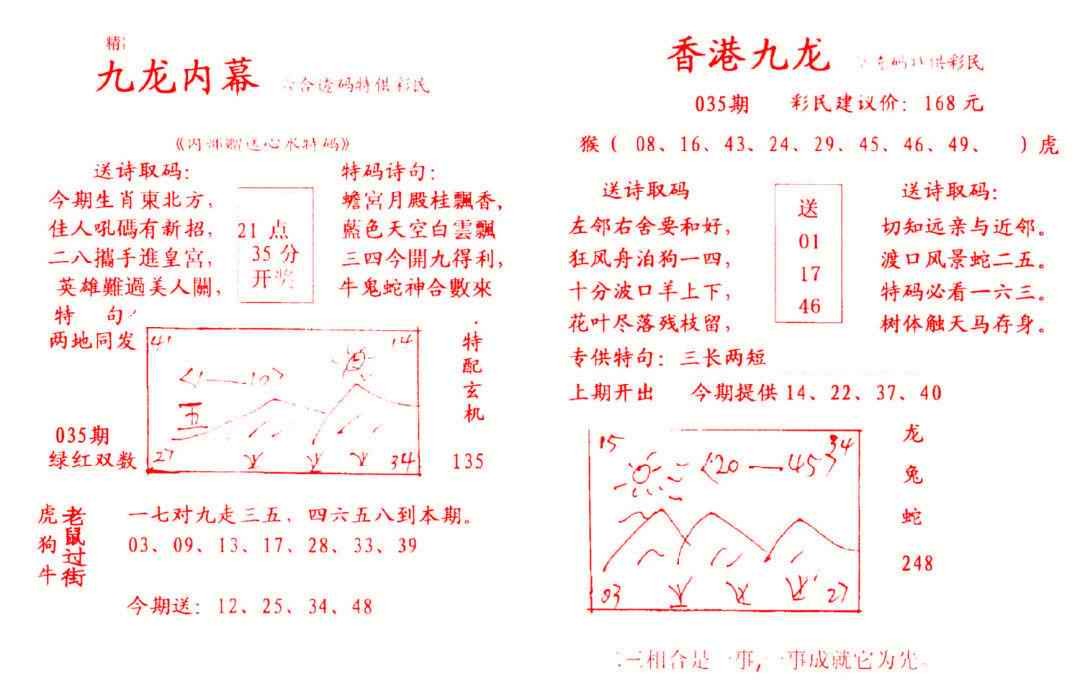 九龙内幕
彩民
送诗取码：
今期生肖東北方，
佳人吼碼有新招，
二八攜手進皇宮，
英雄難過美人關，
21 点
35 分
开奖
特码诗句：
蟾宮月殿桂飄香，
藍色天空白雲飄
三四今開九得利，
牛鬼蛇神合數來
特 句
两地同发
035期
绿红双数
41
14
<1—10>
五
27
34
特
配
玄
机
135
虎
狗
牛
老鼠过街
一七对九走三五，四六五八到本期。
03、09、13、17、28、33、39
今期送：12、25、34、48
香港九龙
供彩民
035期 彩民建议价：168 元
猴（ 08、16、43、24、29、45、46、49、 ）虎
送诗取码
左邻右舍要和好，
狂风舟泊狗一四，
十分波口羊上下，
花叶尽落残枝留，
送
01
17
46
送诗取码：
切知远亲与近邻。
渡口风景蛇二五。
特码必看一六三。
树体触天马存身。
专供特句：三长两短
上期开出 今期提供 14、22、37、40
15
34
<20—45>
03
27
龙
兔
蛇
248
三相合是一事，一事成就它为先。